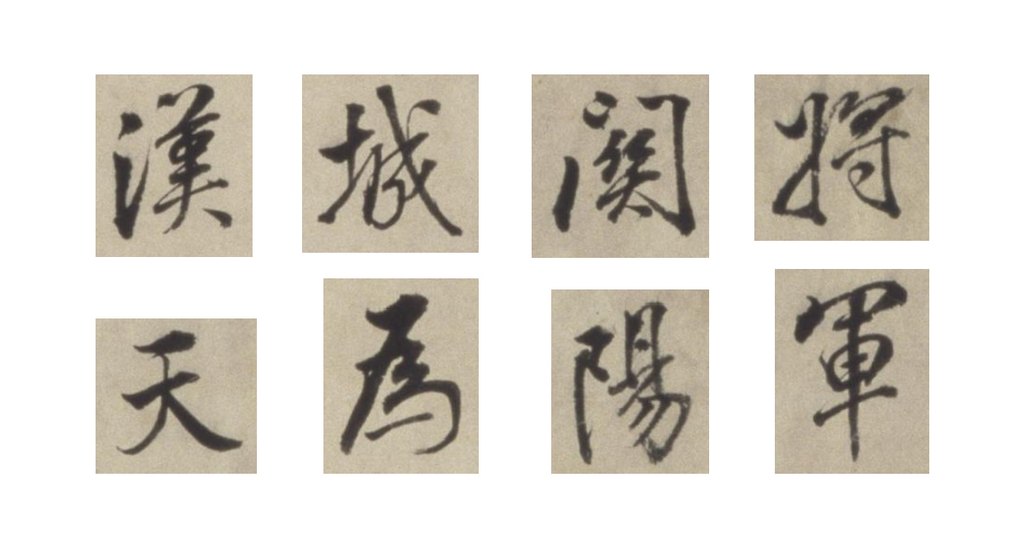 將軍
關陽
城為
漢天